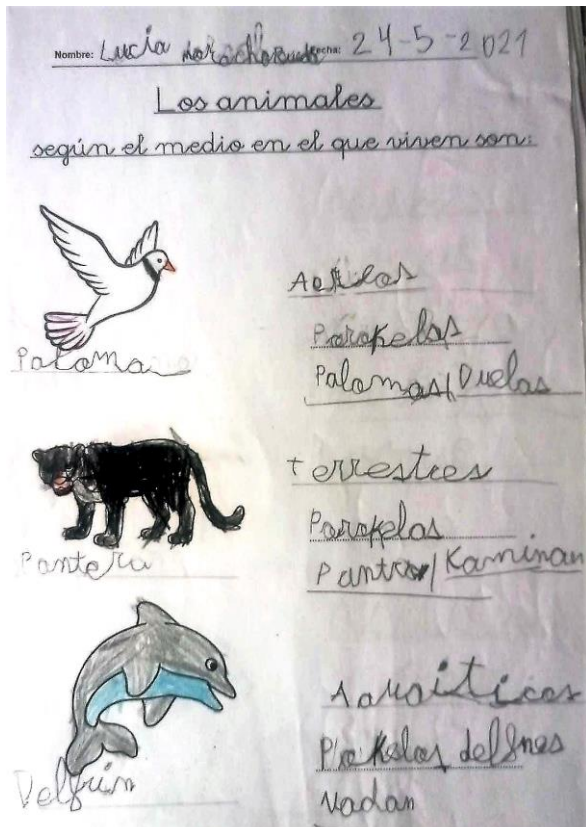 Nombre: Lucía Fecha: 24-5-2021
Los animales
según el medio en el que viven son:
Paloma
Aerelos
Porokelas
Palomas/Vuelas
Pantera
terrestres
Porokelas
Pantras/Kaminan
Delfín
Porkelos delfines
Nadan